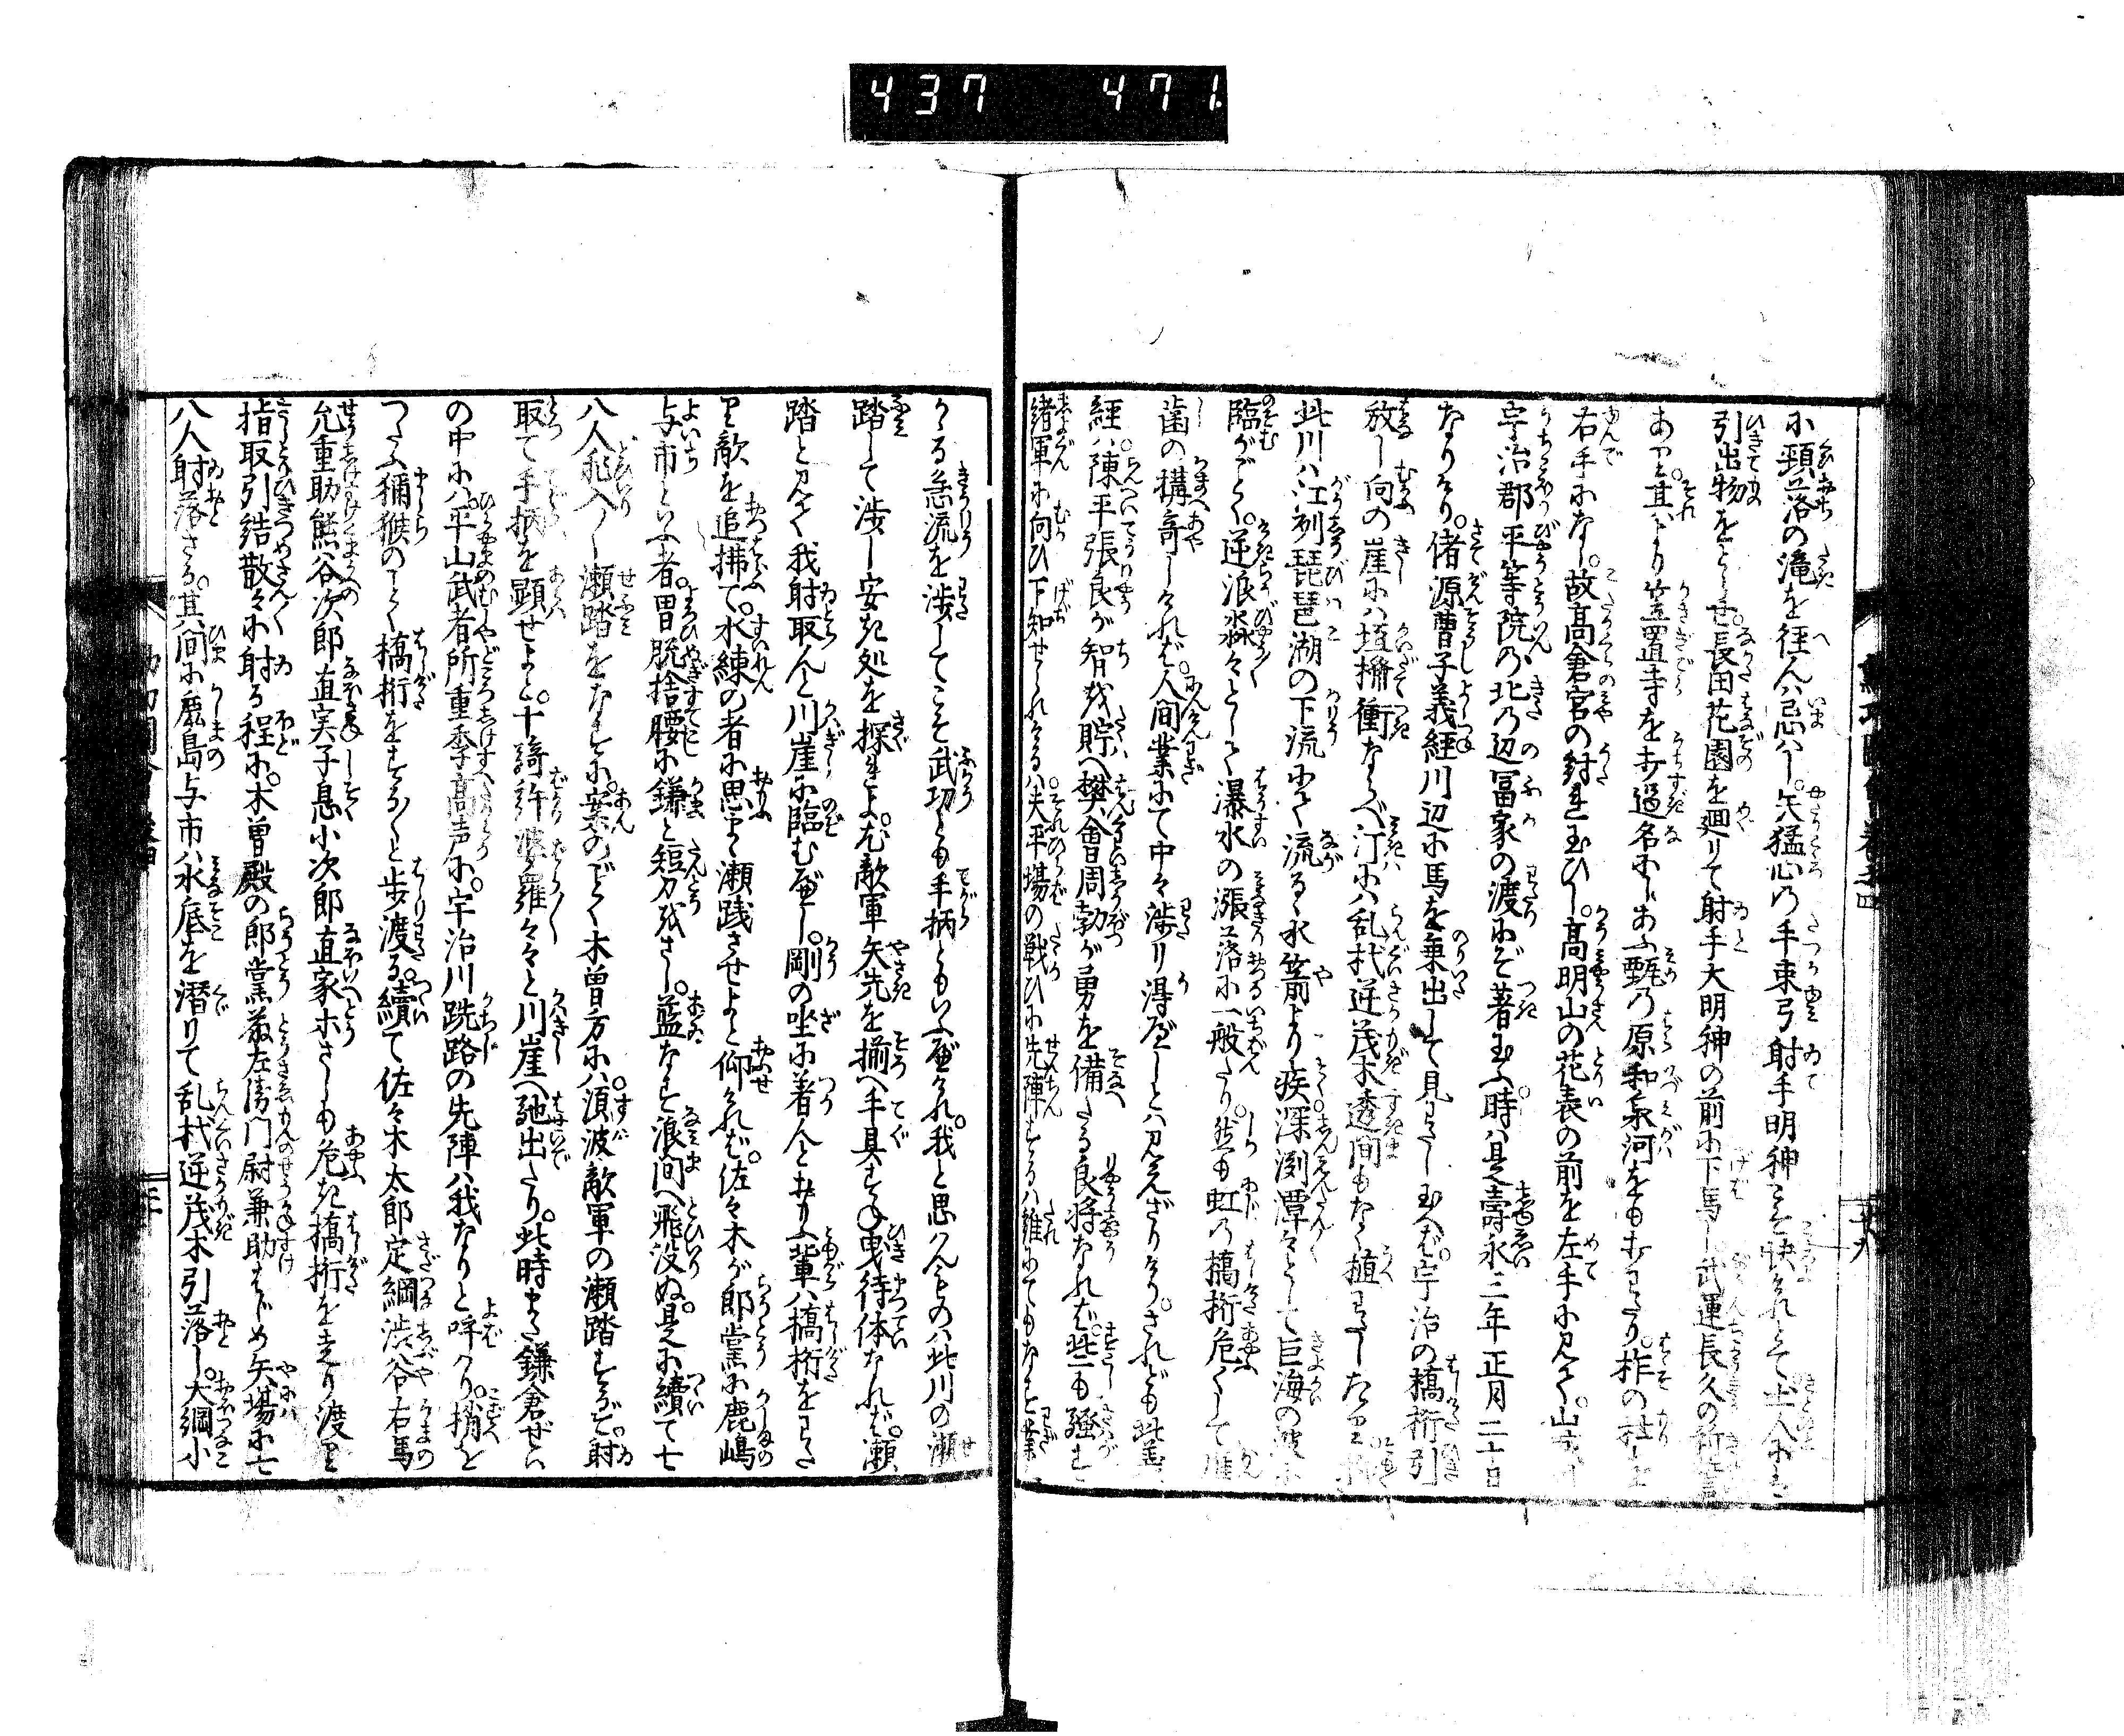 437 471
小頸落の滝を径んハ忌ハし。矢猛心の手束弓射手明神こそ快けれとて土人に
引出物をとらせ。長田花園を廻りて射手大明神の前に下馬し武運長久の祈誓
あり。其より笠置寺を打過名にしあふ甕の原和泉河をも打わたり。柞の杜を
右手になし。故高倉宮の討れ玉ひし。高明山の花表の前を左手に見て。山
宇治郡平等院の北の辺冨家の渡にぞ著玉ふ時ハ是壽永三年正月二十日
なりけり。偖源曹子義経川辺に馬を乗出して見わたし玉へば。宇治の橋桁引
放し向の崖にハ垣楯衝ならべ汀にハ乱杭逆茂木透間もなく植わたしたり
此川ハ江州琵琶湖の下流にて流るゝ水箭より疾深渕潭々として巨海の波に
臨がごとく。逆浪淼々として瀑水の漲落に一般たり然も虹の橋桁危くして雁
歯の構奇しければ。人間業にて中々渉り得べしとハ見えざりけり。されども此義
経ハ。陳平張良が智を貯へ樊噲周勃が勇を備たる良将なれば。些も騒ず
緒軍に向ひ下知せられけるハ夫平場の戦ひに先陣するハ誰にてもなす業
かゝる急流を渉してこそ武功とも手柄ともいふべけれ。我と思ハんものハ此川の瀬
踏して渉し安き処を探れよ。尤敵軍矢先を揃へ手具すね曳待体なれば。瀬
踏と見て我射取んと川崖に臨むべし。剛の坐に着んとおもふ輩ハ橋桁をわた
り敵を追拂て。水練の者に思ふまゝ瀬践させよと仰ければ。佐々木が郎黨に鹿嶋
与市といふ者。冑脱捨腰に鎌と短刀をさし。藍なす浪間へ飛没ぬ。是に續て七
八人飛入〱瀬踏をなすに。案のごとく木曽方にハ。須波敵軍の瀬踏するぞ。射
取て手柄を顕せよと。十騎許婆羅々々と川崖へ馳出たり。此時また鎌倉ぜい
の中にハ平山武者所重季高声に。宇治川跣路の先陣ハ我なりと呼ハり。梢を
つたふ獼猴のごとく橋桁をする〱と歩渡る。續て佐々木太郎定綱渋谷右馬
允重助熊谷次郎直実子息小次郎直家ホさしも危き橋桁を走り渡り
指取引結散々に射る程に。木曽殿の郎黨藤左衛門尉兼助はじめ矢場に七
八人射落さる。其間に鹿島与市ハ水底を潜りて乱杭逆茂木引落し。大綱小